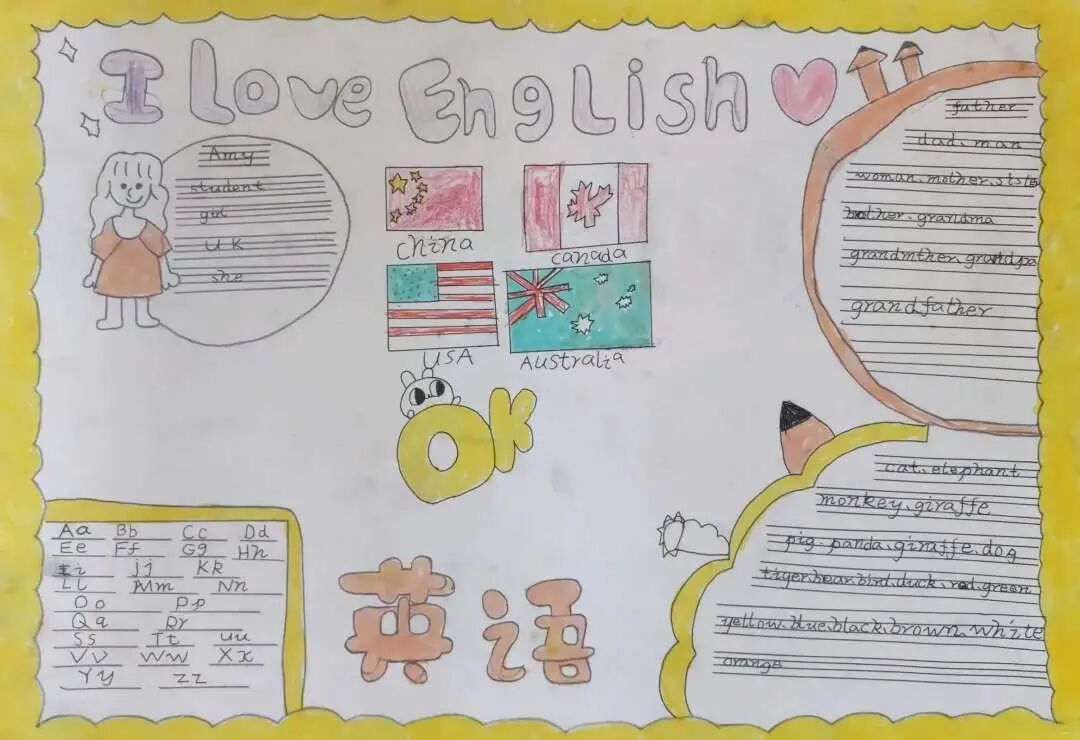 I Love English
Amy
student
girl
UK
she
China
Canada
USA
Australia
OK
father
dad、man
woman、mother、siste
brother、grandma
grandmther、grandpa
grandfather
Aa Bb Cc Dd
Ee Ff Gg Hh
Ii Jj Kk
Ll Mm Nn
Oo Pp
Qq Rr
Ss Tt Uu
Vv Ww Xx
Yy Zz
英语
cat、elephant
monkey、giraffe
pig、panda、giraffe、dog
tiger、bear、bird、duck、red、green
yellow、blue、black、brown、white
orange